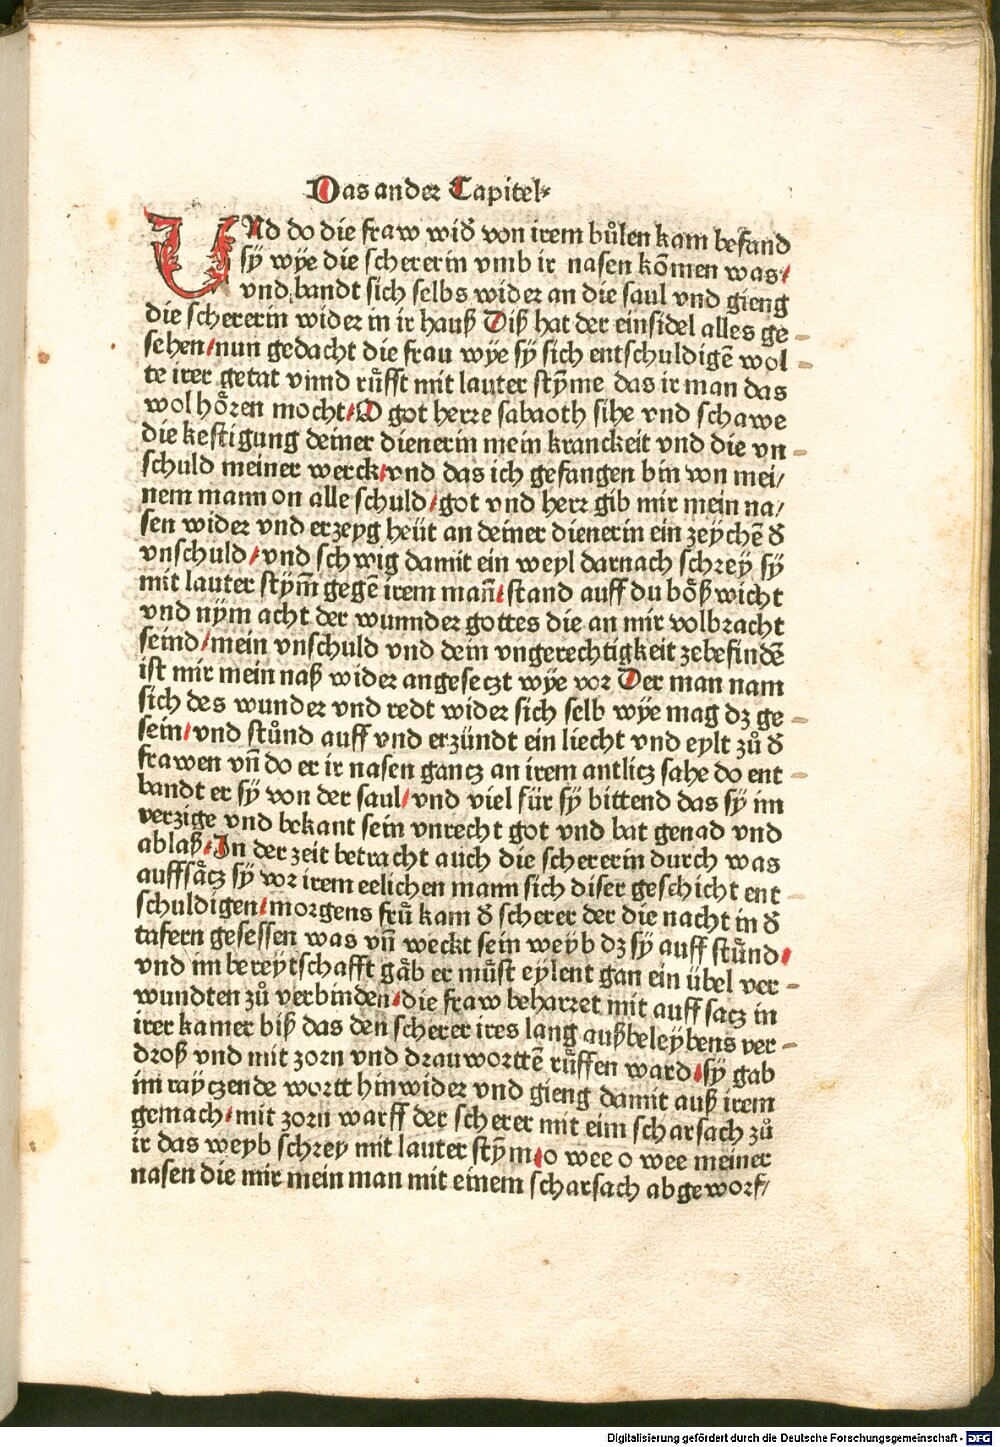 Das ander Capitel
UNd do die fraw wid̃ von irem bůlen kam befand
sÿ wÿe die schererin vmb ir nasen kõmen was/
vnd bandt sich selbs wider an die saul vnd gieng
die schererin wider in ir hauß Diß hat der einsidel alles ge-
sehen/nun gedacht die frau wÿe sÿ sich entschuldigẽ wol-
te irer getat vnnd růfft mit lauter stÿme das ir man das
wol hoͤren mocht/O got herre sabaoth sihe vnd schawe
die kestigung deiner dienerin mein kranckeit vnd die vn-
schuld meiner werck/vnd das ich gefangen bin von mei/
nem mann on alle schuld/got vnd herr gib mir mein na/
sen wider vnd erzeyg heüt an deiner dienerin ein zeÿchẽ d̃
vnschuld/vnd schwig damit ein weyl darnach schreÿ sÿ
mit lauter stÿm̃ gegẽ irem mañ/stand auff du boͤßwicht
vnd nÿm acht der wunnder gottes die an mir volbracht
seind/mein vnschuld vnd dein vngerechtigkeit zebefindẽ
ist mir mein naß wider angeseczt wÿe vor Der man nam
sich des wunder vnd redt wider sich selb wÿe mag dz ge-
sein/vnd stůnd auff vnd erzündt ein liecht vnd eylt zů d̃
frawen vñ do er ir nasen gancz an irem antlicz sahe do ent-
bandt er sÿ von der saul/vnd viel für sÿ bittend das sÿ im
verzige vnd bekant sein vnrecht got vnd bat genad vnd
ablaß/In der zeit betracht auch die schererin durch was
auffsaͤcz sÿ vor irem eelichen mann sich diser geschicht ent-
schuldigen/morgens frů kam d̃ scherer der die nacht in d̃
tafern gesessen was vñ weckt sein weyb dz sÿ auff stůnd/
vnd im bereytschafft gaͤb er můst eÿlent gan ein übel ver-
wundten zů verbinden/die fraw beharret mit auff sacz in
irer kamer biß das den scherer ires lang außbeleybens ver-
droß vnd mit zorn vnd drauworttẽ růffen ward/sÿ gab
im raÿczende wortt hinwider vnd gieng damit auß irem
gemach/mit zorn warff der scherer mit eim scharsach zů
ir das weyb schrey mit lauter stÿm/o wee o wee meiner
nasen die mir mein man mit einem scharsach abgeworf/
Digitalisierung gefördert durch die Deutsche Forschungsgemeinschaft - DFG